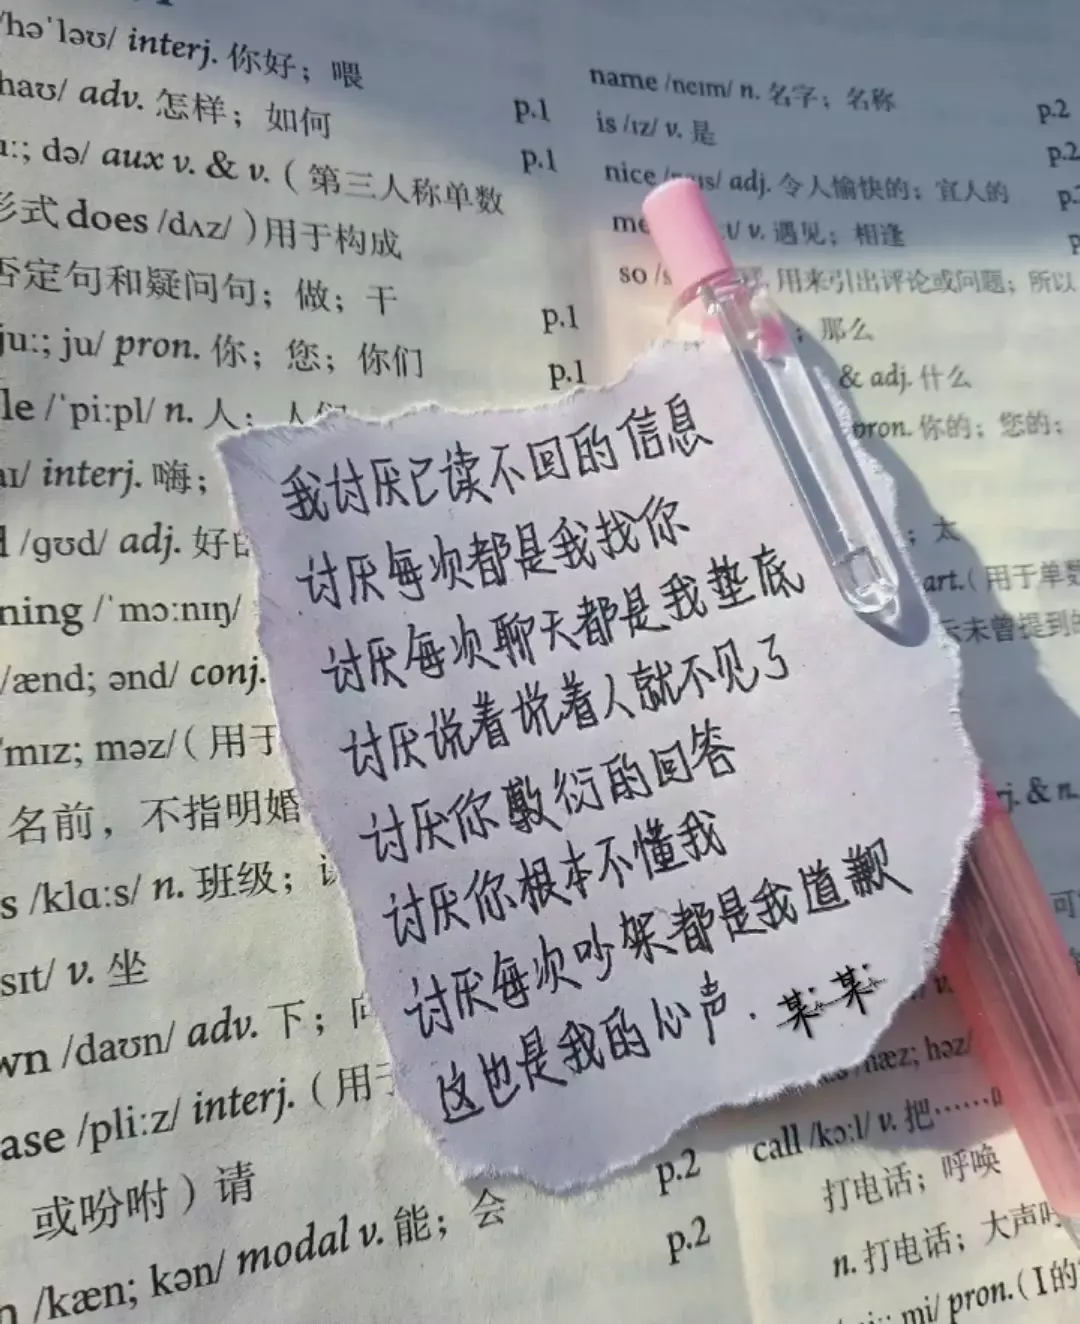 /həˈləʊ/ interj. 你好；喂
haʊ/ adv. 怎样；如何 p.1
ɑː; də/ aux v. & v.（第三人称单数 p.1
形式 does /dʌz/）用于构成
否定句和疑问句；做；干 p.1
juː; ju/ pron. 你；您；你们 p.1
le /ˈpiːpl/ n. 人；人们
aɪ/ interj. 嗨；
d /ɡʊd/ adj. 好的
ning /ˈmɔːnɪŋ/
/ænd; ənd/ conj.
ˈmɪz; məz/（用于
名前，不指明婚
s /klɑːs/ n. 班级；
sɪt/ v. 坐
wn /daʊn/ adv. 下；向
ase /pliːz/ interj.（用于
或吩咐）请 p.2
n /kæn; kən/ modal v. 能；会 p.2
name /neɪm/ n. 名字；名称 p.2
is /ɪz/ v. 是 p.2
nice /naɪs/ adj. 令人愉快的；宜人的
me t/ v. 遇见；相逢
so /s 用来引出评论或问题；所以
；那么
& adj. 什么
pron. 你的；您的；
；太
art.（用于单数
未曾提到的
j. & n.
hæz; həz/
call /kɔːl/ v. 把……
打电话；呼唤
n. 打电话；大声呼
mi/ pron.（I的
我讨厌已读不回的信息
讨厌每次都是我找你
讨厌每次聊天都是我垫底
讨厌说着说着人就不见了
讨厌你敷衍的回答
讨厌你根本不懂我
讨厌每次吵架都是我道歉
这也是我的心声. 某某